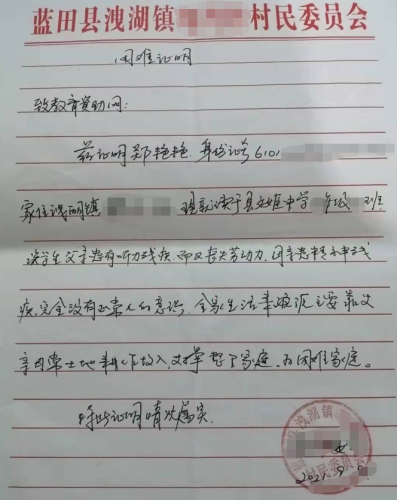 蓝田县洩湖镇 村民委员会
困难证明
致教育资助网:
兹证明郑艳艳 身份证号6101
家住洩湖镇 现就读于县 中学 年级 班
该学生父亲患有听力残疾,而又丧失劳动力,母亲患精神残
疾,完全没有正常人的意识,全家生活来源主要靠父
亲 土地 收入,支撑整个家庭,为困难家庭。
特此证明情况属实.
洩湖镇
村民委员会
2021.